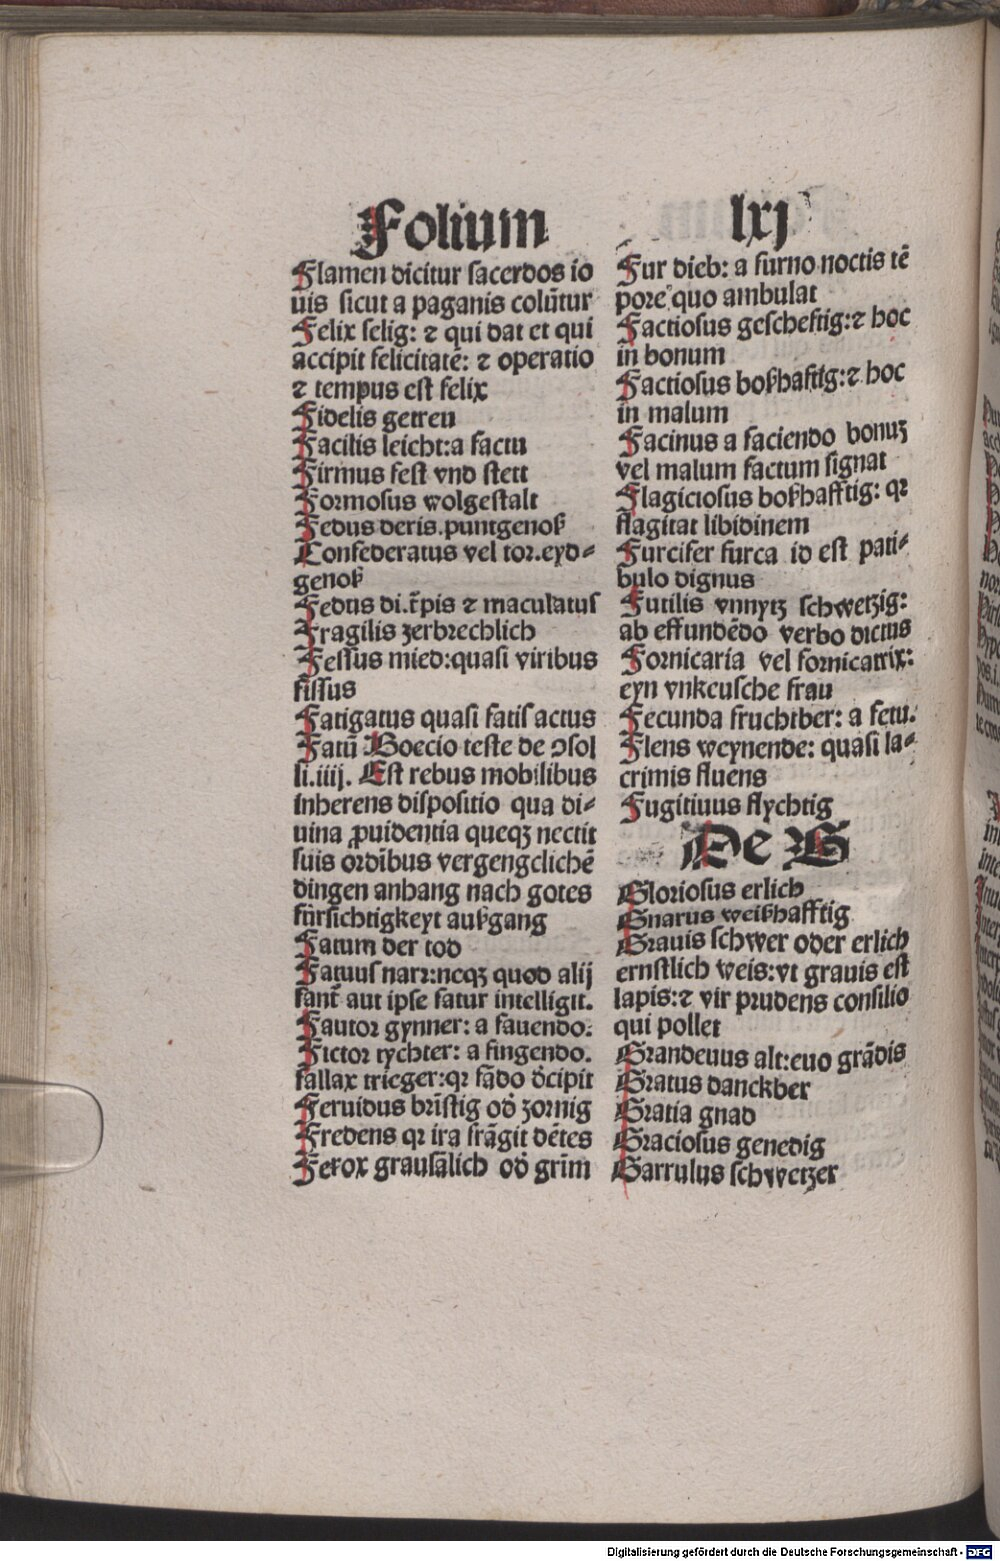 Folium lxj
Flamen dicitur sacerdos io
uis sicut a paganis colũtur
Felix selig: ⁊ qui dat et qui
accipit felicitatẽ: ⁊ operatio
⁊ tempus est felix
Fidelis getreu
Facilis leicht:a factu
Firmus fest vnd stett
Formosus wolgestalt
Fedus deris.puntgenoß
Confederatus vel tor.eyd⸗
genoß
Fedus di.t̃pis ⁊ maculatus
Fragilis zerbrechlich
Fessus mied:quasi viribus
fissus
Fatigatus quasi fatis actus
Fatũ Boecio teste de ↄsol
li.iiij. Est rebus mobilibus
inherens dispositio qua di⸗
uina ꝓuidentia queqꝫ nectit
suis ordĩbus vergengclichẽ
dingen anhang nach gotes
fürsichtigkeyt außgang
Fatum der tod
Fatuus narr:neqꝫ quod alij
fant̃ aut ipse fatur intelligit.
Fautor gynner: a fauendo.
Fictor tychter: a fingendo.
fallax trieger:qꝛ fãdo d̓cipit
Feruidus brĩstig od̓ zornig
Fredens qꝛ ira frãgit dẽtes
Ferox grausãlich od̓ grĩm
Fur dieb: a furno noctis tẽ
pore quo ambulat
Factiosus gescheftig:⁊ hoc
in bonum
Factiosus boßhaftig:⁊ hoc
in malum
Facinus a faciendo bonuꝫ
vel malum factum signat
Flagiciosus boßhafftig: qꝛ
flagitat libidinem
Furcifer furca id est pati⸗
bulo dignus
Futilis vnnytz schwetzig:
ab effundẽdo verbo dictus
Fornicaria vel fornicatrix:
eyn vnkeusche frau
Fecunda fruchtber: a fetu.
Flens weynende: quasi la⸗
crimis fluens
Fugitiuus flychtig
De G
Gloriosus erlich
Gnarus weißhafftig
Grauis schwer oder erlich
ernstlich weis:vt grauis est
lapis:⁊ vir prudens consilio
qui pollet
Grandeuus alt:euo grãdis
Gratus danckber
Gratia gnad
Graciosus genedig
Garrulus schwetzer
Digitalisierung gefördert durch die Deutsche Forschungsgemeinschaft - DFG